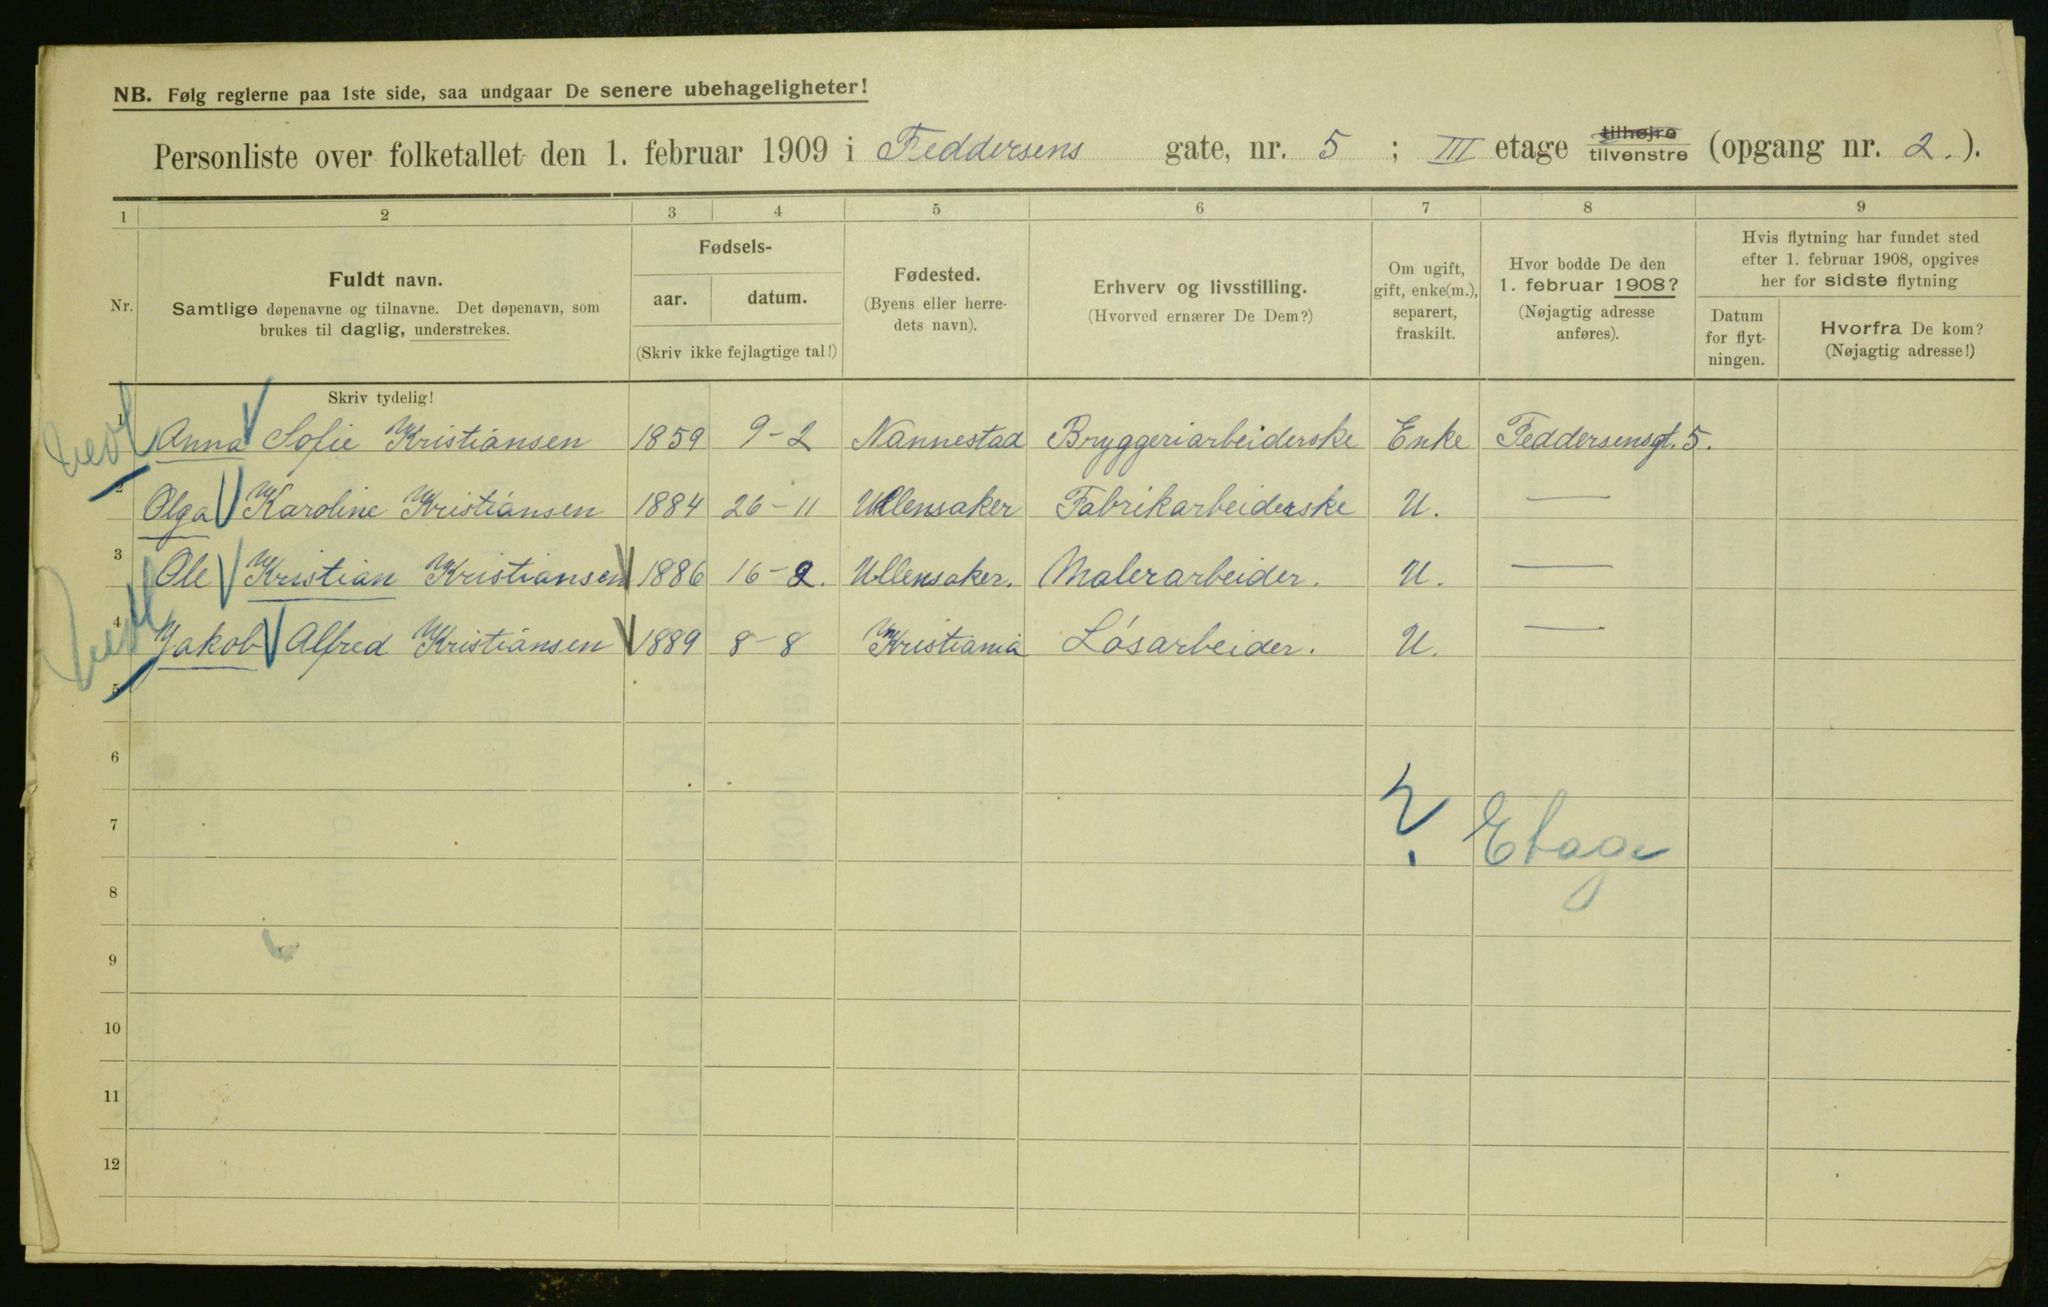 NB. Følg reglerne paa 1ste side, saa undgaar De senere ubehageligheter!
Personliste over folketallet den 1. februar 1909 i Feddersens gate, nr. 5 ; III etage tilhøjre tilvenstre (opgang nr. 2.).
1 2 3 4 5 6 7 8 9
Nr.
Fuldt navn.
Samtlige døpenavne og tilnavne. Det døpenavn, som
brukes til daglig, understrekes.
Fødsels-
aar. datum.
(Skriv ikke fejlagtige tal!)
Fødested.
(Byens eller herre-
dets navn).
Erhverv og livsstilling.
(Hvorved ernærer De Dem?)
Om ugift,
gift, enke(m.),
separert,
fraskilt.
Hvor bodde De den
1. februar 1908?
(Nøjagtig adresse
anføres).
Hvis flytning har fundet sted
efter 1. februar 1908, opgives
her for sidste flytning
Datum
for flyt-
ningen.
Hvorfra De kom?
(Nøjagtig adresse!)
Skriv tydelig!
1 Anna Sofie Kristiansen 1859 9-2 Nannestad Bryggeriarbeiderske Enke Feddersensgt. 5.
2 Olga Karoline Kristiansen 1884 26-11 Ullensaker Fabrikarbeiderske U. —
3 Ole Kristian Kristiansen 1886 16-2. Ullensaker. Malerarbeider. U. —
4 Jakob Alfred Kristiansen 1889 8-8 Kristiania Løsarbeider. U. —
5
6
7
? Etage
8
9
10
11
12